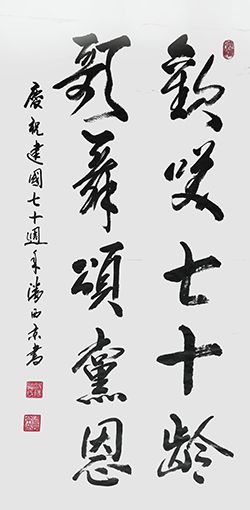 歡笑七十龄
歌舞頌黨恩
慶祝建國七十週年潘西京書